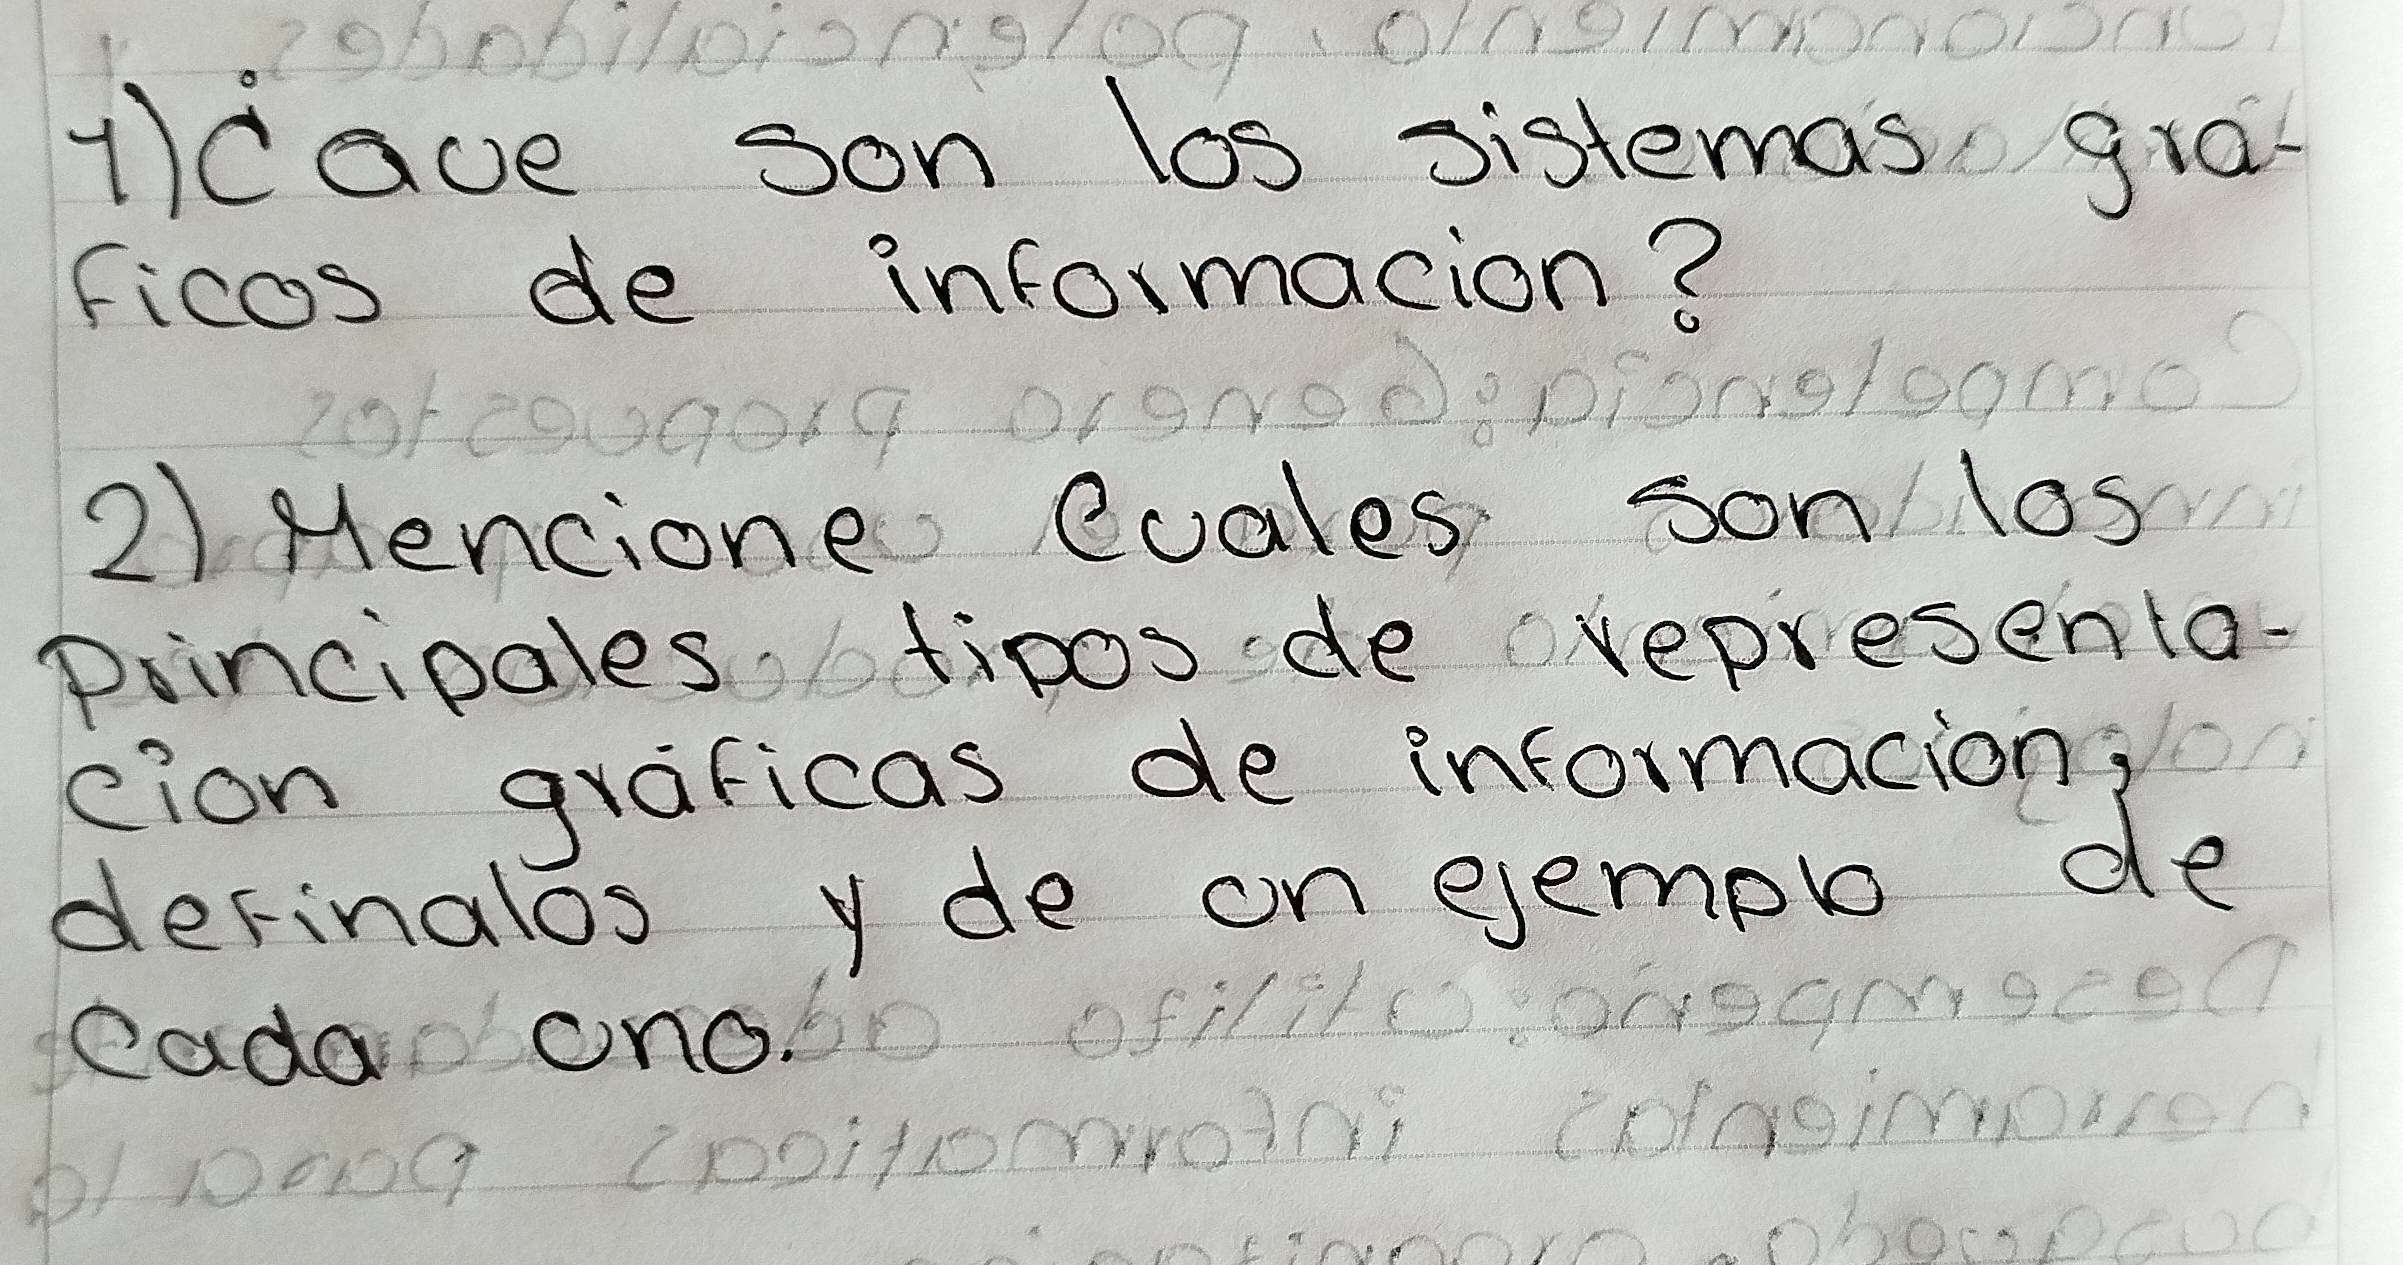 1) ¿Que son los sistemas grá-
ficos de informacion?
2) Mencione Cuales son los
principales tipos de representa-
cion gráficas de informacion;
definalos y de un ejemplo de
Cada uno.